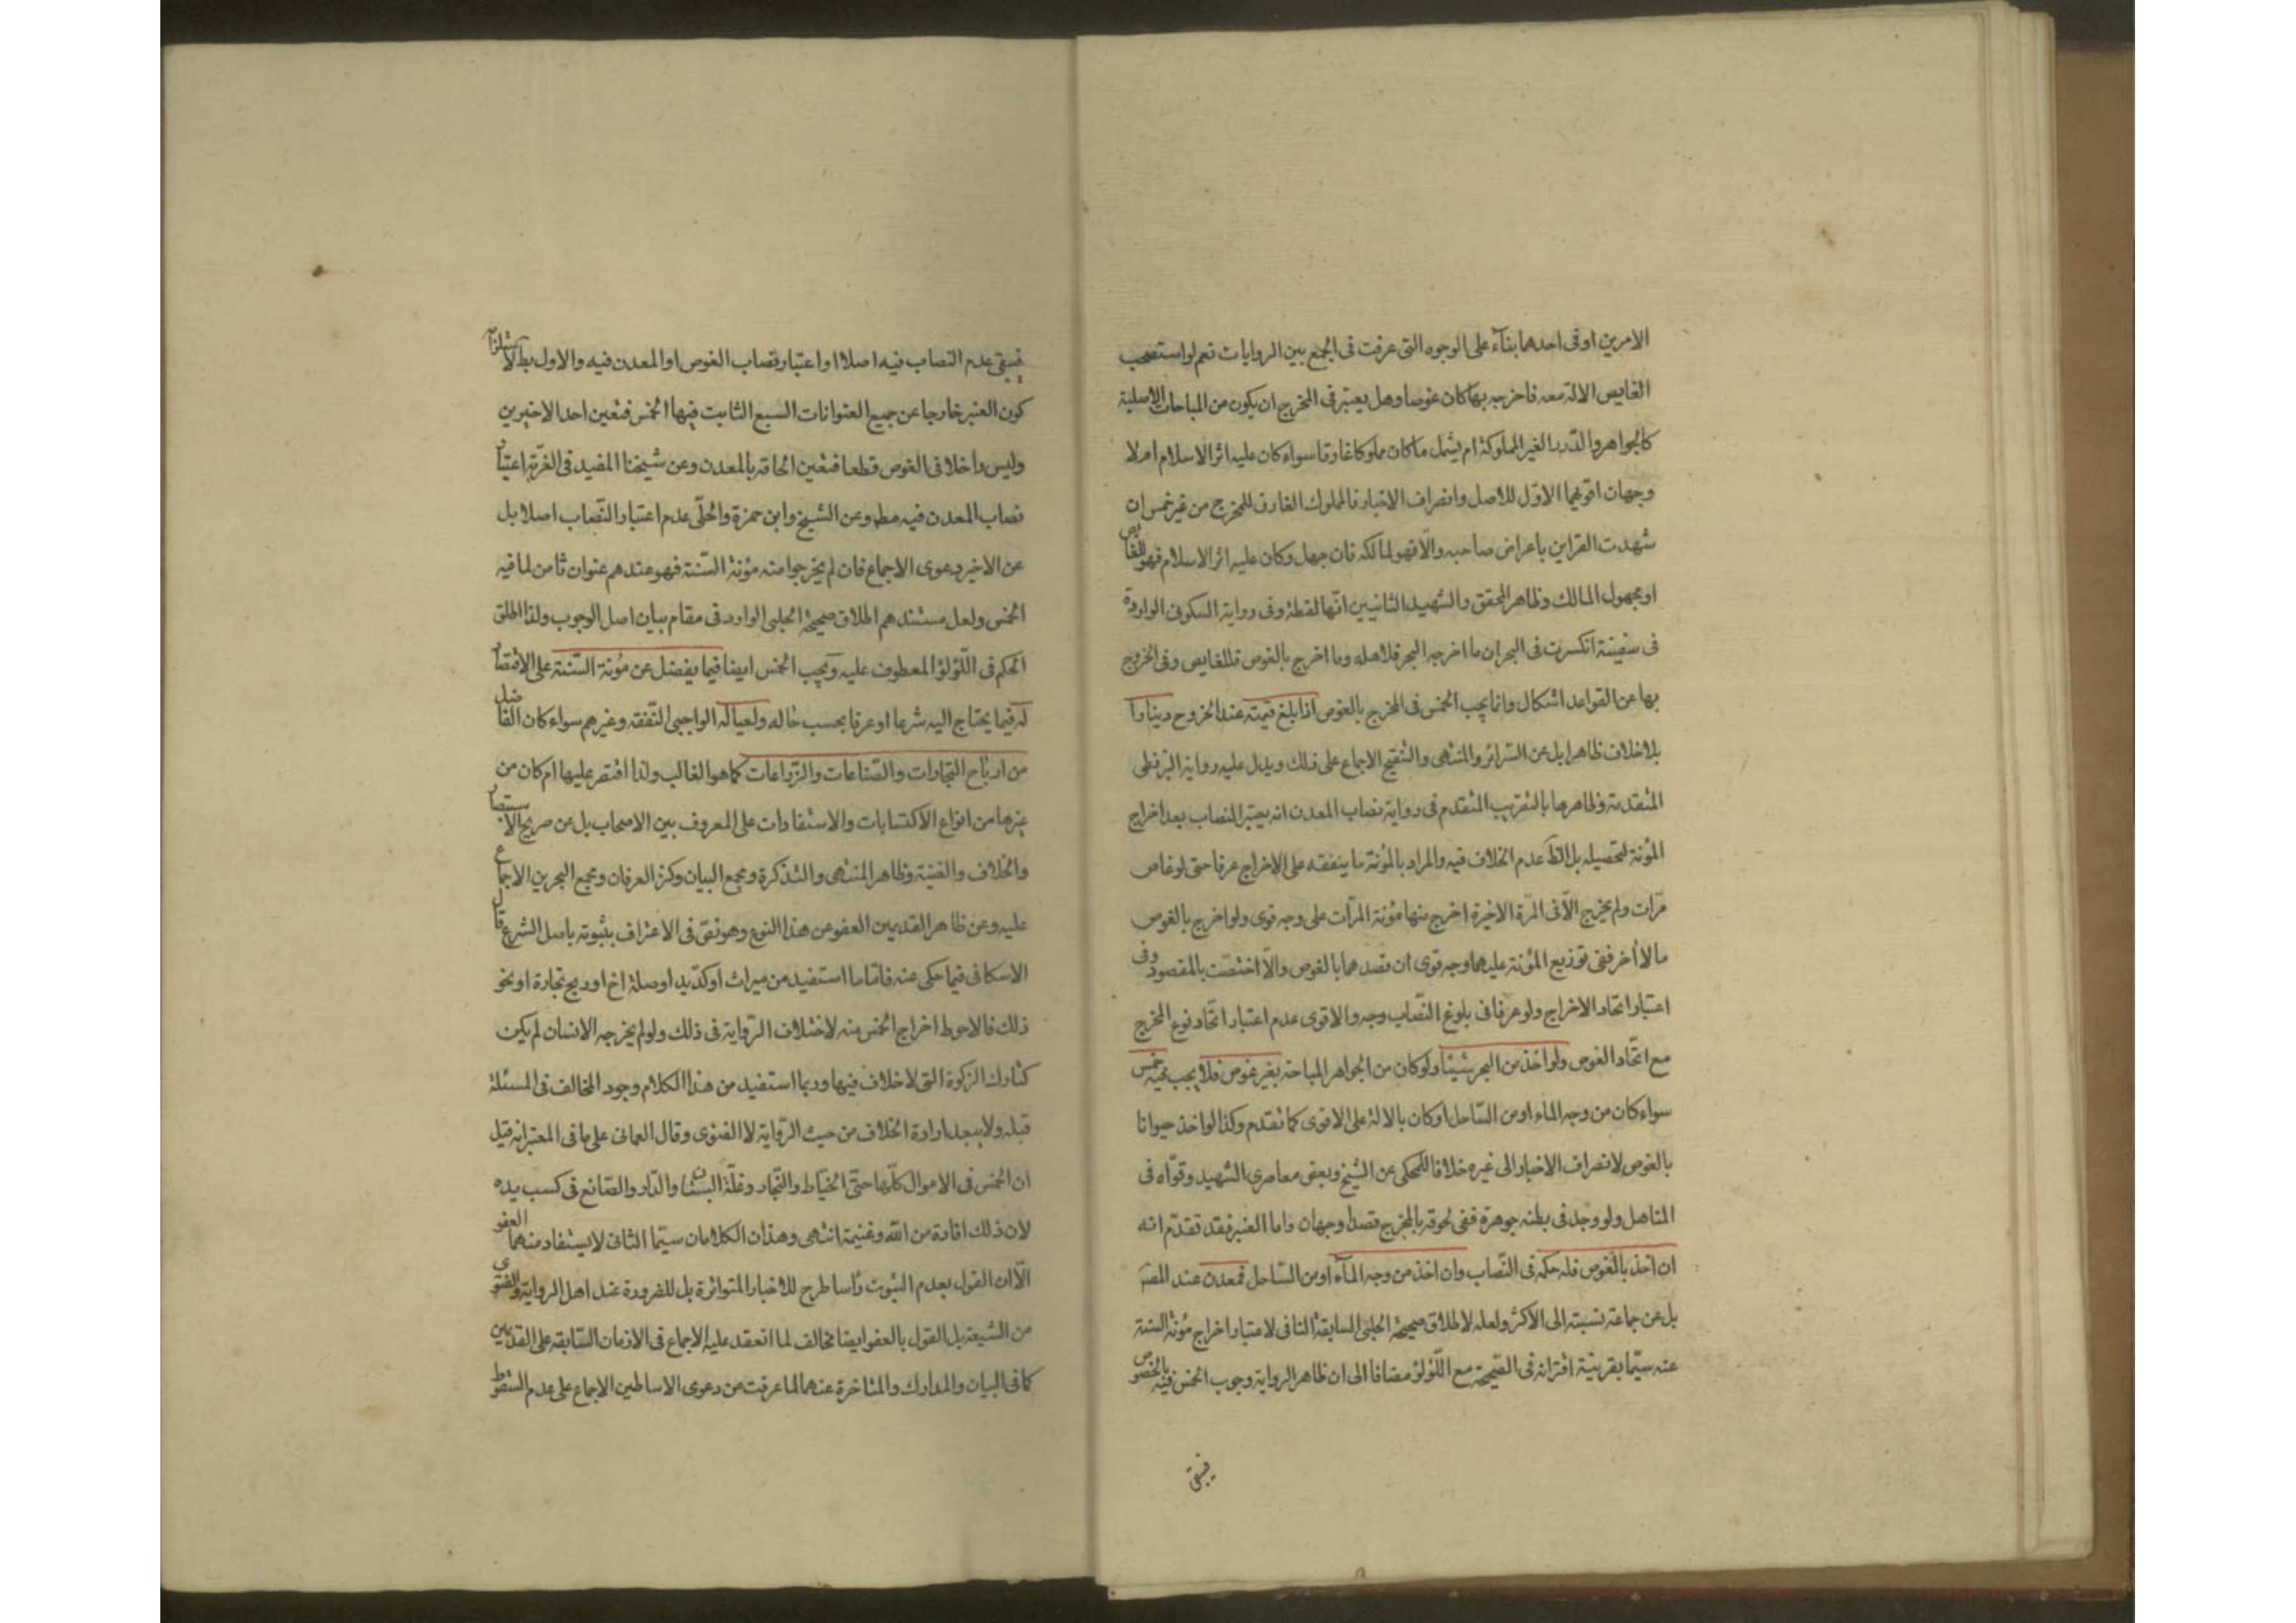 الامرين او فى احدهما بنآء على الوجوه التى عرفت فى الجمع بين الروايات نعم لو استصحب
الغايص الالة معه فاخرجه بها كان غوصا وهل يعتبر فى المخرج ان يكون من المباحات الاصلية
كالجواهر والدّرر الغير المملوكة ام يشمل ما كان مملوكا غارقا سواء كان عليه اثر الاسلام ام لا
وجهان اقويهما الاوّل للاصل وانصراف الاخبار فالمملوك الغارق للمخرج من غير خمس ان
شهدت القراين باعراض صاحبه والّا فهو لمالكه فان جهل وكان عليه اثر الاسلام فهو للغايص
او مجهول المالك وظاهر المحقق والشهيد الثانيين انّها لقطة وفى رواية السكونى الواردة
فى سفينة انكسرت فى البحر ان ما اخرجه البحر فلاهله وما اخرج بالغوص فللغايص وفى الخروج
بها عن القواعد اشكال وانما يجب الخمس فى المخرج بالغوص اذا بلغ قيمته عند الخروج دينارا
بلا خلاف ظاهرا بل عن السّرائر والمنتهى والتنقيح الاجماع على ذلك ويدل عليه رواية البزنطى
المتقدمة وظاهرها بالتقريب المتقدم فى رواية نصاب المعدن انه يعتبر النصاب بعد اخراج
المؤنة لتحصيله بل الظ عدم الخلاف فيه والمراد بالمؤنة ما ينفقه على الاخراج عرفا حتى لو غاص
مرّات ولم يخرج الّا فى المرّة الاخيرة اخرج منها مؤنة المرّات على وجه قوى ولو اخرج بالغوص
مالا اخر ففى توزيع المؤنة عليهما وجه قوى ان قصدهما بالغوص والّا اختصّت بالمقصود وفى
اعتبار اتحاد الاخراج ولو عرفا فى بلوغ النّصاب وجه والاقوى عدم اعتبار اتّحاد نوع المخرج
مع اتّحاد الغوص ولو اخذ من البحر شيئا ولو كان من الجواهر المباحة بغير غوص فلا يجب فيه خمس
سواء كان من وجه الماء او من السّاحل او كان بالالة على الاقوى كما تقدم وكذا لو اخذ حيوانا
بالغوص لانصراف الاخبار الى غيره خلافا للمحكى عن الشيخ وبعض معاصرى الشهيد وقوّاه فى
المناهل ولو وجد فى بطنه جوهرة ففى لحوقه بالمخرج قصدا وجهان واما العنبر فقد تقدّم انه
ان اخذ بالغوص فله حكمه فى النّصاب وان اخذ من وجه المآء او من السّاحل فمعدن عند المص
بل عن جماعة نسبته الى الاكثر ولعله لاطلاق صحيحة الحلبى السابقة النافى لاعتبار اخراج مؤنة السنة
عنه سيّما بقرينة اقترانه فى الصّحيحة مع اللّؤلؤ مضافا الى ان ظاهر الرواية وجوب الخمس فيه بالخصوص
فيبقى
فيبقى عدم النصاب فيه اصلا او اعتبار نصاب الغوص او المعدن فيه والاول بط لاستلزامه
كون العنبر خارجا عن جميع العنوانات السبع الثابت فيها الخمس فتعين احد الاخيرين
وليس داخلا فى الغوص قطعا فتعين الحاقه بالمعدن وعن شيخنا المفيد فى الغرّية اعتبار
نصاب المعدن فيه مط وعن الشيخ وابن حمزة والحلّى عدم اعتبار النّصاب اصلا بل
عن الاخير دعوى الاجماع فان لم يخرجوا منه مؤنة السّنة فهو عندهم عنوان ثامن لما فيه
الخمس ولعل مستندهم اطلاق صحيحة الحلبى الوارد فى مقام بيان اصل الوجوب ولذا اطلق
الحكم فى اللّؤلؤ المعطوف عليه ويجب الخمس ايضا فيما يفضل عن مؤنة السّنة على الاقتصاد
له فيما يحتاج اليه شرعا او عرفا بحسب حاله ولعياله الواجبى النّفقة وغيرهم سواء كان الفاضل
من ارباح التّجارات والصّناعات والزّراعات كما هو الغالب ولذا اقتصر عليها ام كان من
غيرها من انواع الاكتسابات والاستفادات على المعروف بين الاصحاب بل عن صريح الاستبصار
والخلاف والغنية وظاهر المنتهى والتذكرة ومجمع البيان وكنز العرفان ومجمع البحرين الاجماع
عليه وعن ظاهر القديمين العفو عن هذا النوع وهو نصّ فى الاعتراف بثبوته باصل الشرع قال
الاسكافى فيما حكى عنه فامّا ما استفيد من ميراث او كدّ يد او صلة اخ او ربح تجارة او نحو
ذلك فالاحوط اخراج الخمس منه لاختلاف الرّواية فى ذلك ولو لم يخرجه الانسان لم يكن
كتارك الزكوة التى لا خلاف فيها وربما استفيد من هذا الكلام وجود المخالف فى المسئلة
قبله ولا يبعد ارادة الخلاف من حيث الرّواية لا الفتوى وقال العمانى على ما فى المعتبر انه قيل
ان الخمس فى الاموال كلّها حتّى الخيّاط والنّجار وغلّة البستان والدّار والصّانع فى كسب يده
لان ذلك افادة من الله وغنيمة انتهى وهذان الكلامان سيّما الثانى لا يستفاد منهما العفو
الّا ان القول بعدم الثبوت رأسا طرح للاخبار المتواترة بل للضرورة عند اهل الرواية والفتوى
من الشيعة بل القول بالعفو ايضا مخالف لما انعقد عليه الاجماع فى الازمان السّابقة على القديمين
كما فى البيان والمدارك والمتاخرة عنهما لما عرفت من دعوى الاساطين الاجماع على عدم السّقوط